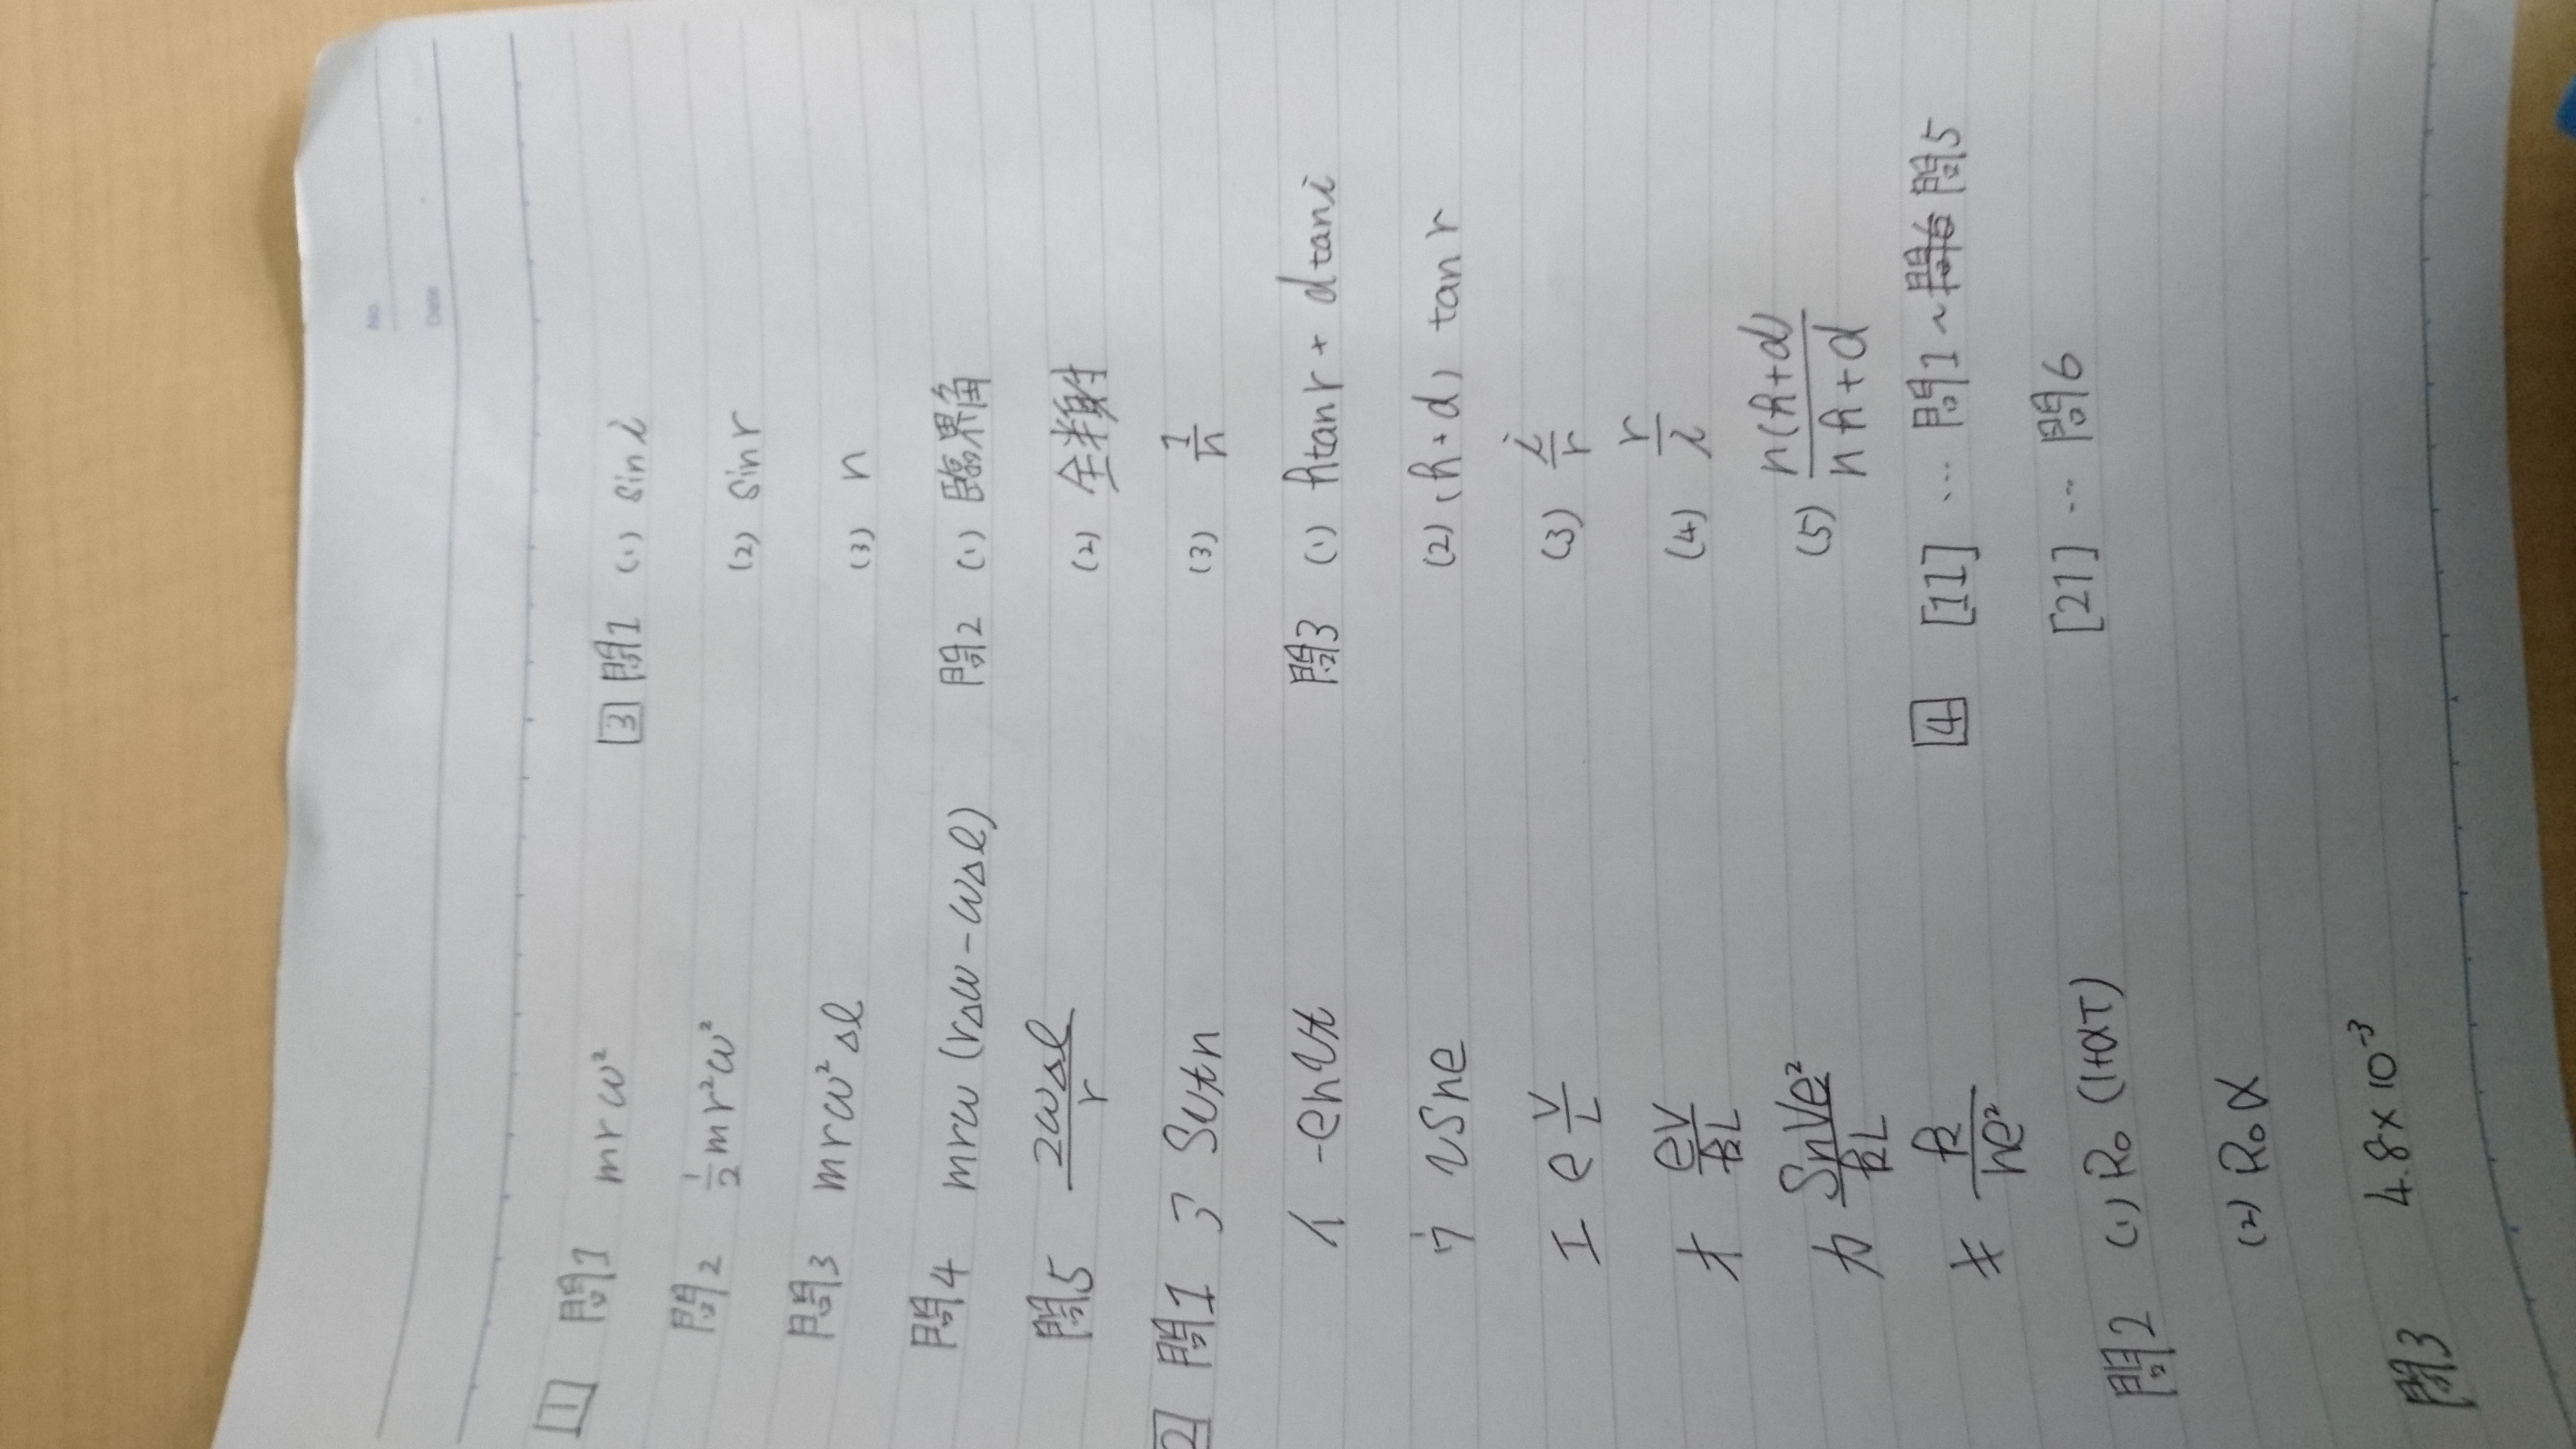 No.
Date
1 問1 mrω²
問2 1/2 mr²ω²
問3 mrω²Δl
問4 mrω(rΔω-ωΔl)
問5 2ωΔl/r
2 問1 ア Svtn
イ -envt
ウ vSne
エ e V/L
オ eV/kL
カ SnVe²/kL
キ k/ne²
問2 (1) R₀(1+αT)
(2) R₀α
問3 4.8×10⁻³
3 問1 (1) sin i
(2) sin r
(3) n
問2 (1) 臨界角
(2) 全反射
(3) 1/n
問3 (1) h tan r + d tan i
(2) (h+d) tan r
(3) i/r
(4) r/i
(5) n(h+d)/nh+d
4 [11] … 問1 ~ 問6 問5
[21] … 問6